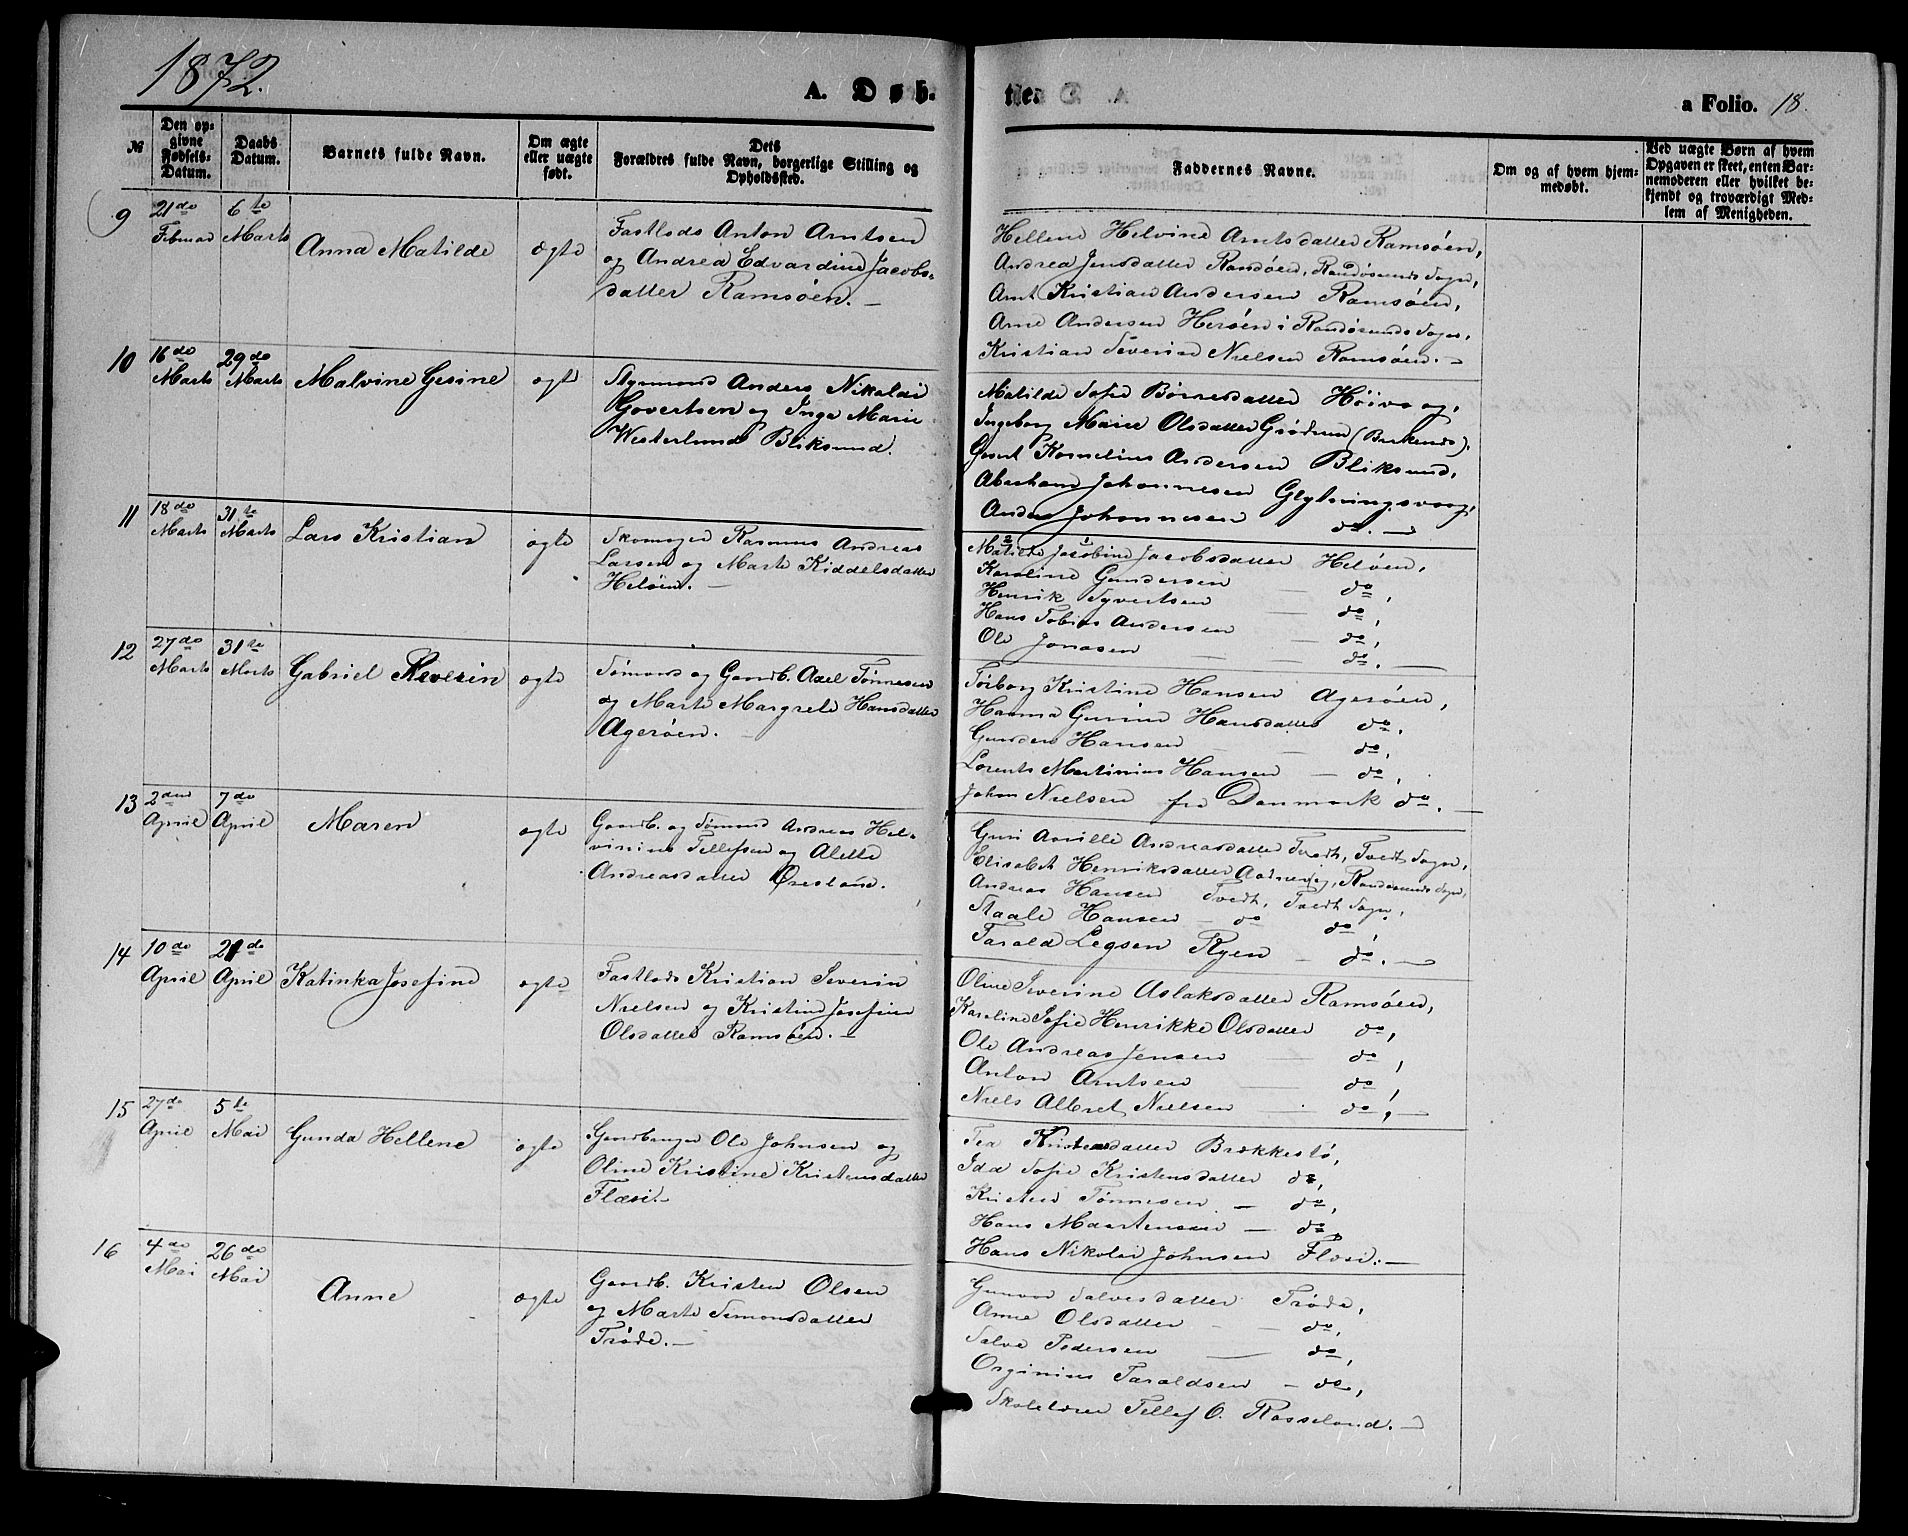 1872.
A. Døb-
te.
a Folio. 18.
№
Den op-
givne
Fødsels-
Datum.
Daabs
Datum.
Barnets fulde Navn.
Om ægte
eller uægte
født.
Dets
Forældres fulde Navn, borgerlige Stilling og
Opholdssted.
Faddernes Navne.
Om og af hvem hjem-
medøbt.
Ved uægte Børn af hvem
Opgaven er skeet, enten Bar-
nemoderen eller hvilket be-
kjendt og troværdigt Med-
lem af Menigheden.
9
21de
Februar
6te
Marts
Anna Matilde
ægte
Fastlods Anton Arntsen
og Andrea Edvardine Jacobs-
datter Ramsøen. —
Hellene Helvine Arntsdatter Ramsøen,
Andrea Jensdatter Randøen, Randøsunds Sogn,
Arnt Kristian Andersen Ramsøen,
Arne Andersen Herøen i Randøsunds Sogn,
Kristian Severin Nielsen Ramsøen. —
10
16de
Marts
29de
Marts
Malvine Gesine
ægte
Styrmand Anders Nikolai
Govertsen og Inga Marie
Westerlund Bliksund.
Matilde Sofie Børresdatter Høivo og,
Ingeborg Marie Olsdatter Grødum
Govert Kornelius Andersen Bliksund,
Aberham Johannesen
Anders Johannesen do. —
11
18de
Marts
31te
Marts
Lars Kristian
ægte
Skomager Rasmus Andreas
Larsen og Marte Kiddelsdatter
Heløen. —
Matilde Jacobine Jacobsdatter Heløen,
Karoline Gundersen — do,
Henrik Syvertsen — do,
Hans Tobias Andersen — do,
Ole Jonasen — — do. —
12
27de
Marts
31te
Marts
Gabriel Severin
ægte
Sømand og Gaardb. Axel Tønnesen
og Marte Margrete Hansdatter
Agerøen. —
Torborg Kristine Hansen Agerøen,
Hanna Gurine Hansdatter do.
Gunder Hansen — do,
Lorents Martinius Hansen — do,
Johan Nielsen fra Danmark do. —
13
2den
April
7de
April
Maren
ægte
Gaardb. og Sømand Andreas Hel-
vinius Tellefsen og Alette
Andreasdatter Øresland.
Guri Andreasdatter Tvedt, Tvedt Sogn,
Elisabet Henriksdatter Randøsunds Sogn,
Andreas Hansen Tvedt, Tvedt Sogn,
Staale Hansen — do do,
Tarald Legsen Ryen — do. —
14
10de
April
21de
April
Katinka Josefine
ægte
Fastlods Kristian Severin
Nielsen og Kristine Josefine
Olsdatter Ramsøen. —
Oline Severine Aslaksdatter Ramsøen,
Karoline Sofie Henrikke Olsdatter do,
Ole Andreas Jensen — do,
Anton Arntsen — do,
Niels Albret Nielsen — do, —
15
27de
April
5te
Mai
Gunda Hellene
ægte
Gaardbruger Ole Johnsen og
Oline Kristine Kristensdatter
Flæsi. —
Tea Kristensdatter Brækkestø,
Ida Sofie Kristensdatter do,
Kristen Tønnesen — do,
Hans Maartensen — do,
Hans Nikolai Johnsen Flæsi. —
16
4de
Mai
26de
Mai
Anne
ægte
Gaardb. Kristen Olsen
og Marte Simonsdatter
Trøde. —
Gunvor Salvesdatter Trøde,
Anne Olsdatter — do,
Salve Pedersen — do,
Orginius Taraldsen — do,
Skolelærer Tellef O. Rosseland. —